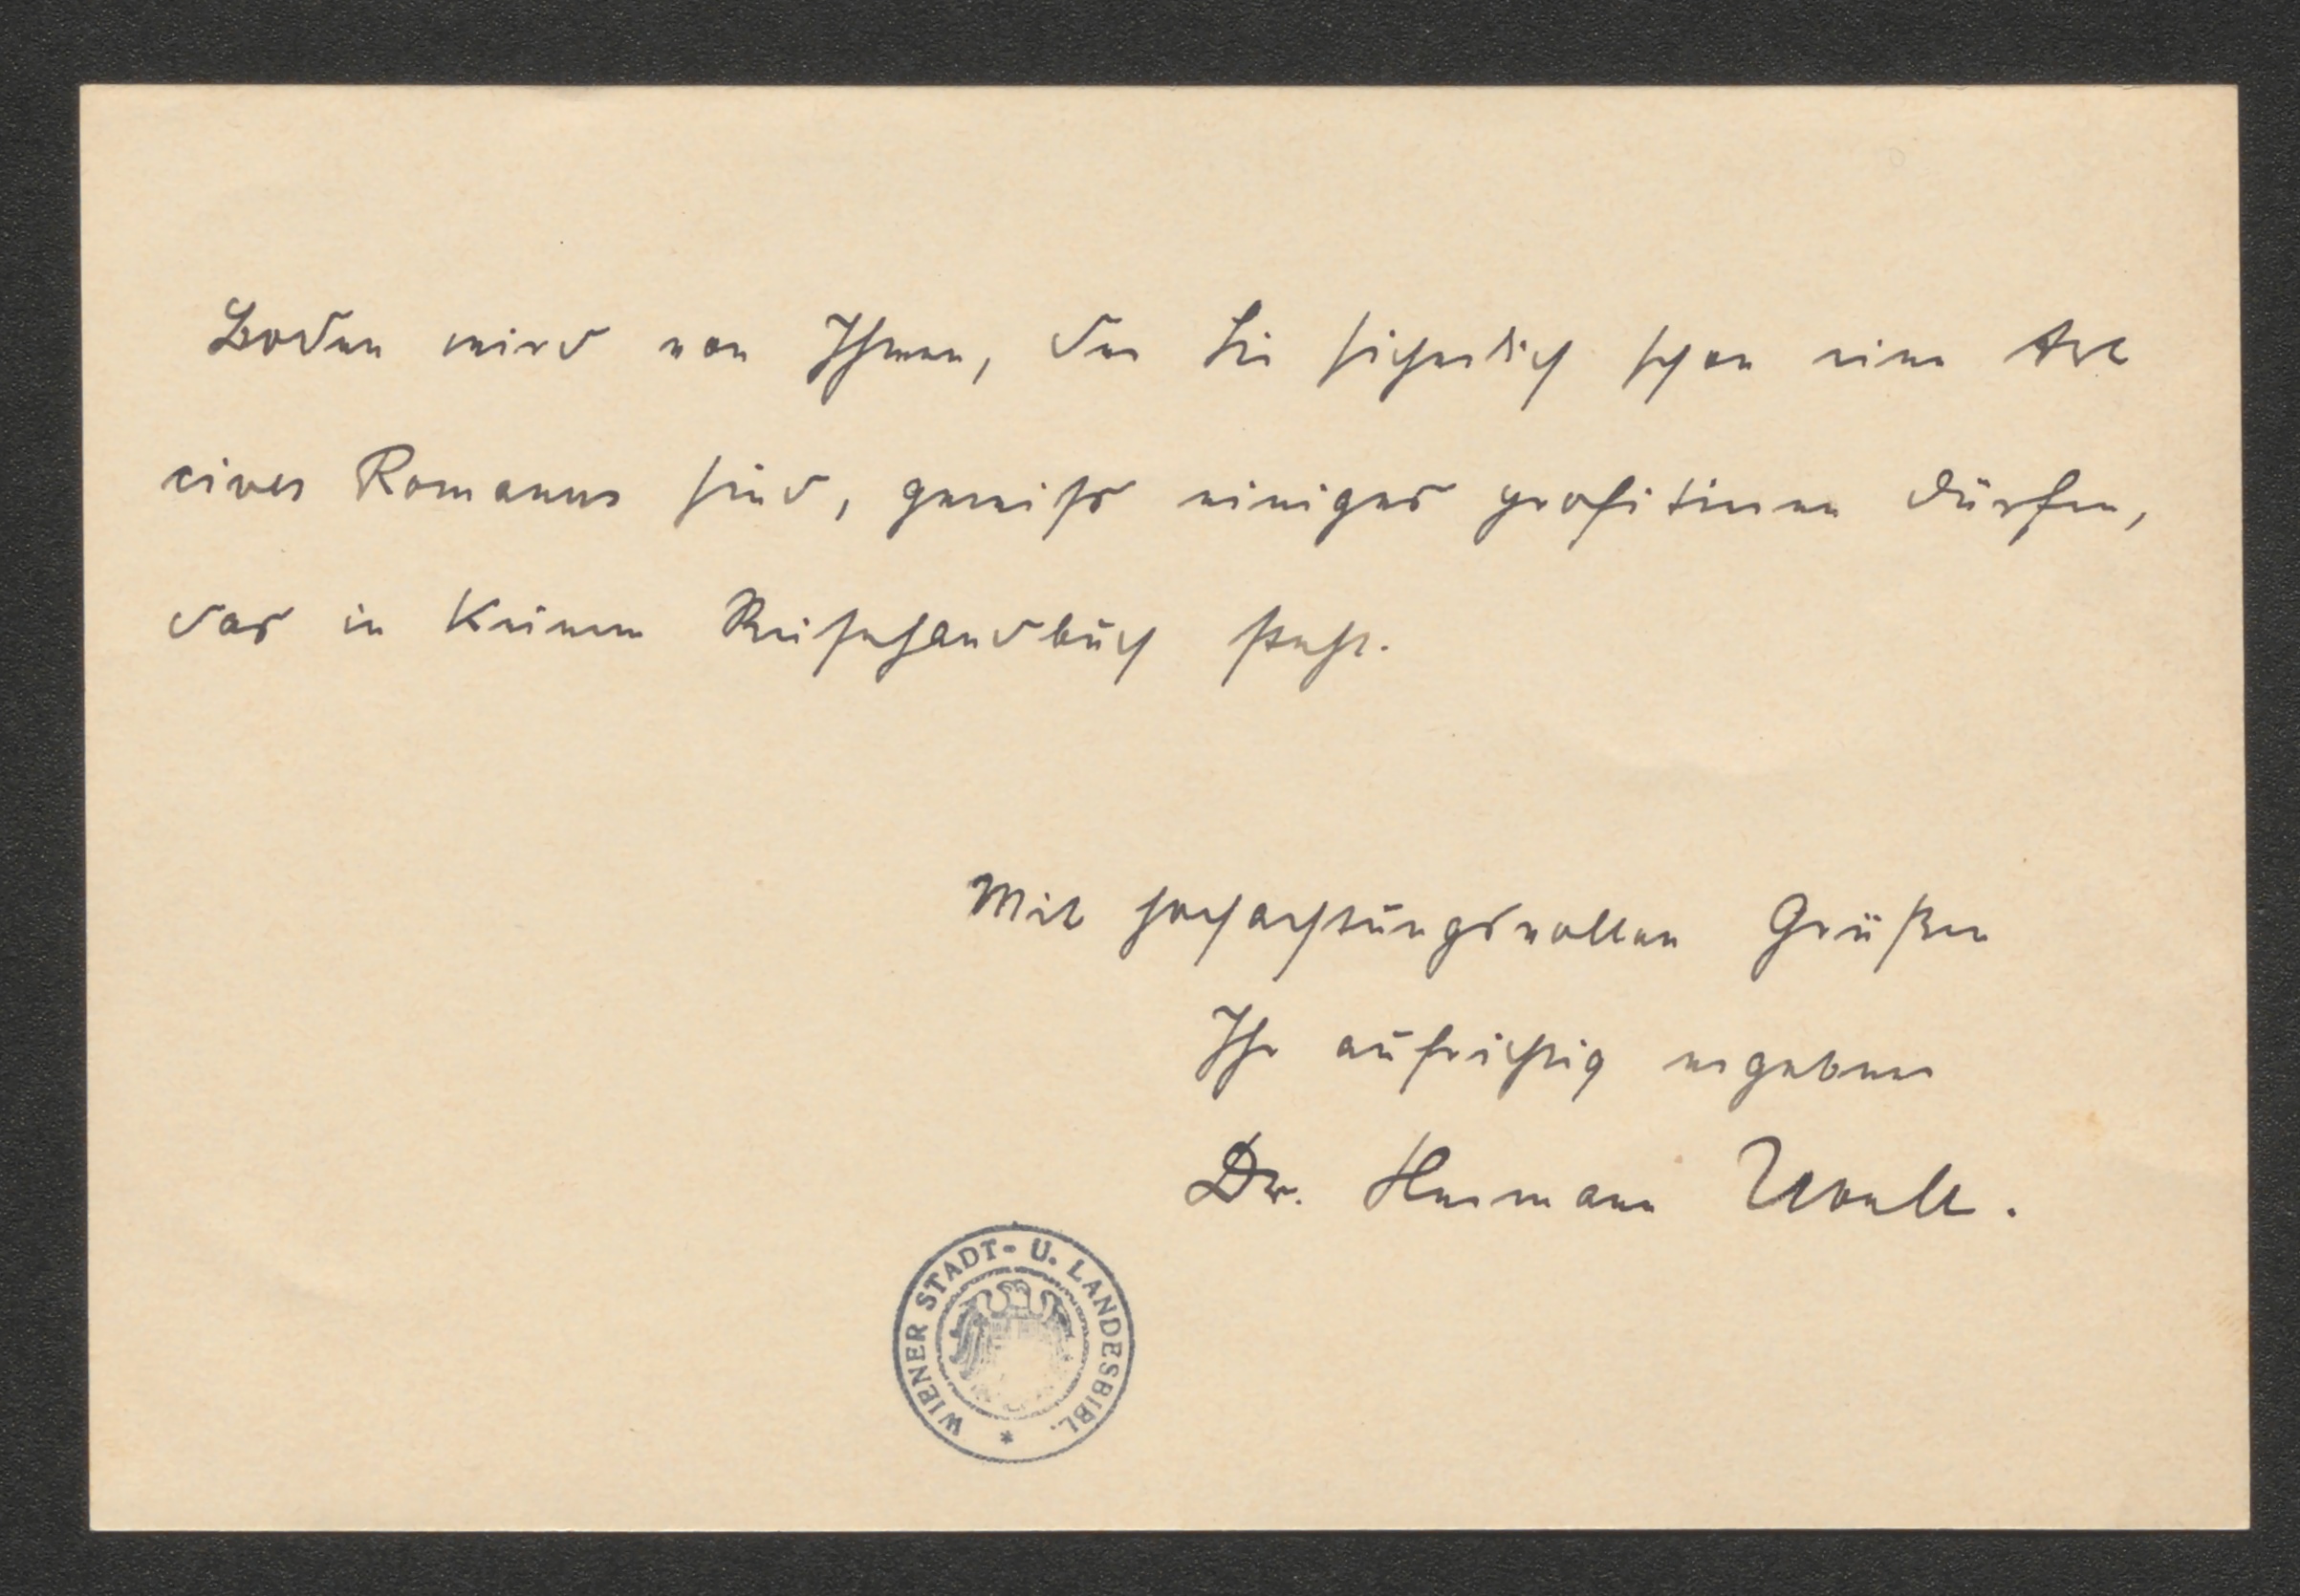 Boden wird von Ihnen, der Sie sicherlich schon eine Art
cives Romanus sind, gewiss einiges profitieren dürfen,
das in keinem Reisehandbuch steht.
Mit hochachtungsvollen Grüßen
Ihr aufrichtig ergebener
Dr. Hermann Ubell.
WIENER STADT- U. LANDESBIBL.